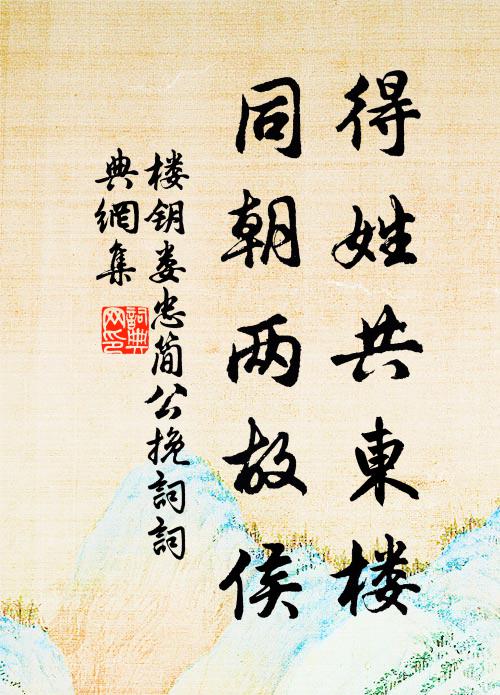 得姓共東楼
同朝两故侯
楼钥娄忠简公挽詞詞
典網集
詞典网印